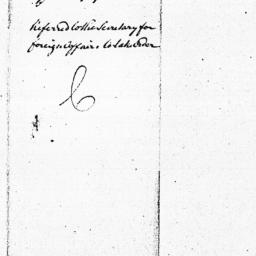 Referred to the Secretary for
foreign affairs to take Order